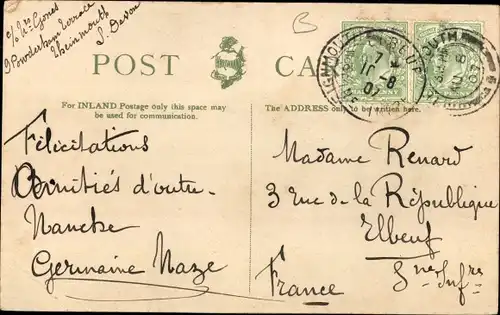 c/o Mrs Jones
9 Powderham Terrace
Teinmouth
S. Devon
POST CA
For INLAND Postage only this space may
be used for communication.
The ADDRESS only to be written here.
Félicitations
Amitiés d'outre-
Manche
Germaine Naze
Madame Renard
3 Rue de la République
Elbeuf
Sne Infre
France